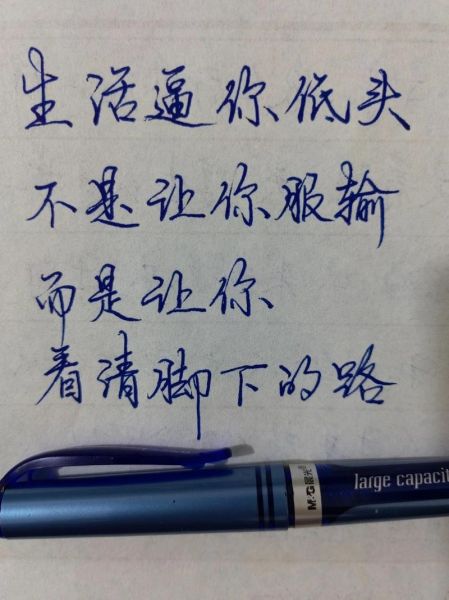 生活逼你低头
不是让你服输
而是让你
看清脚下的路
M&G晨光 large capacit